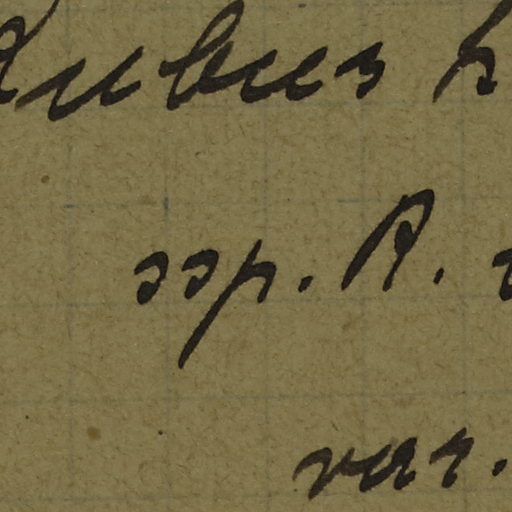 Rubus
ssp. R.
var.